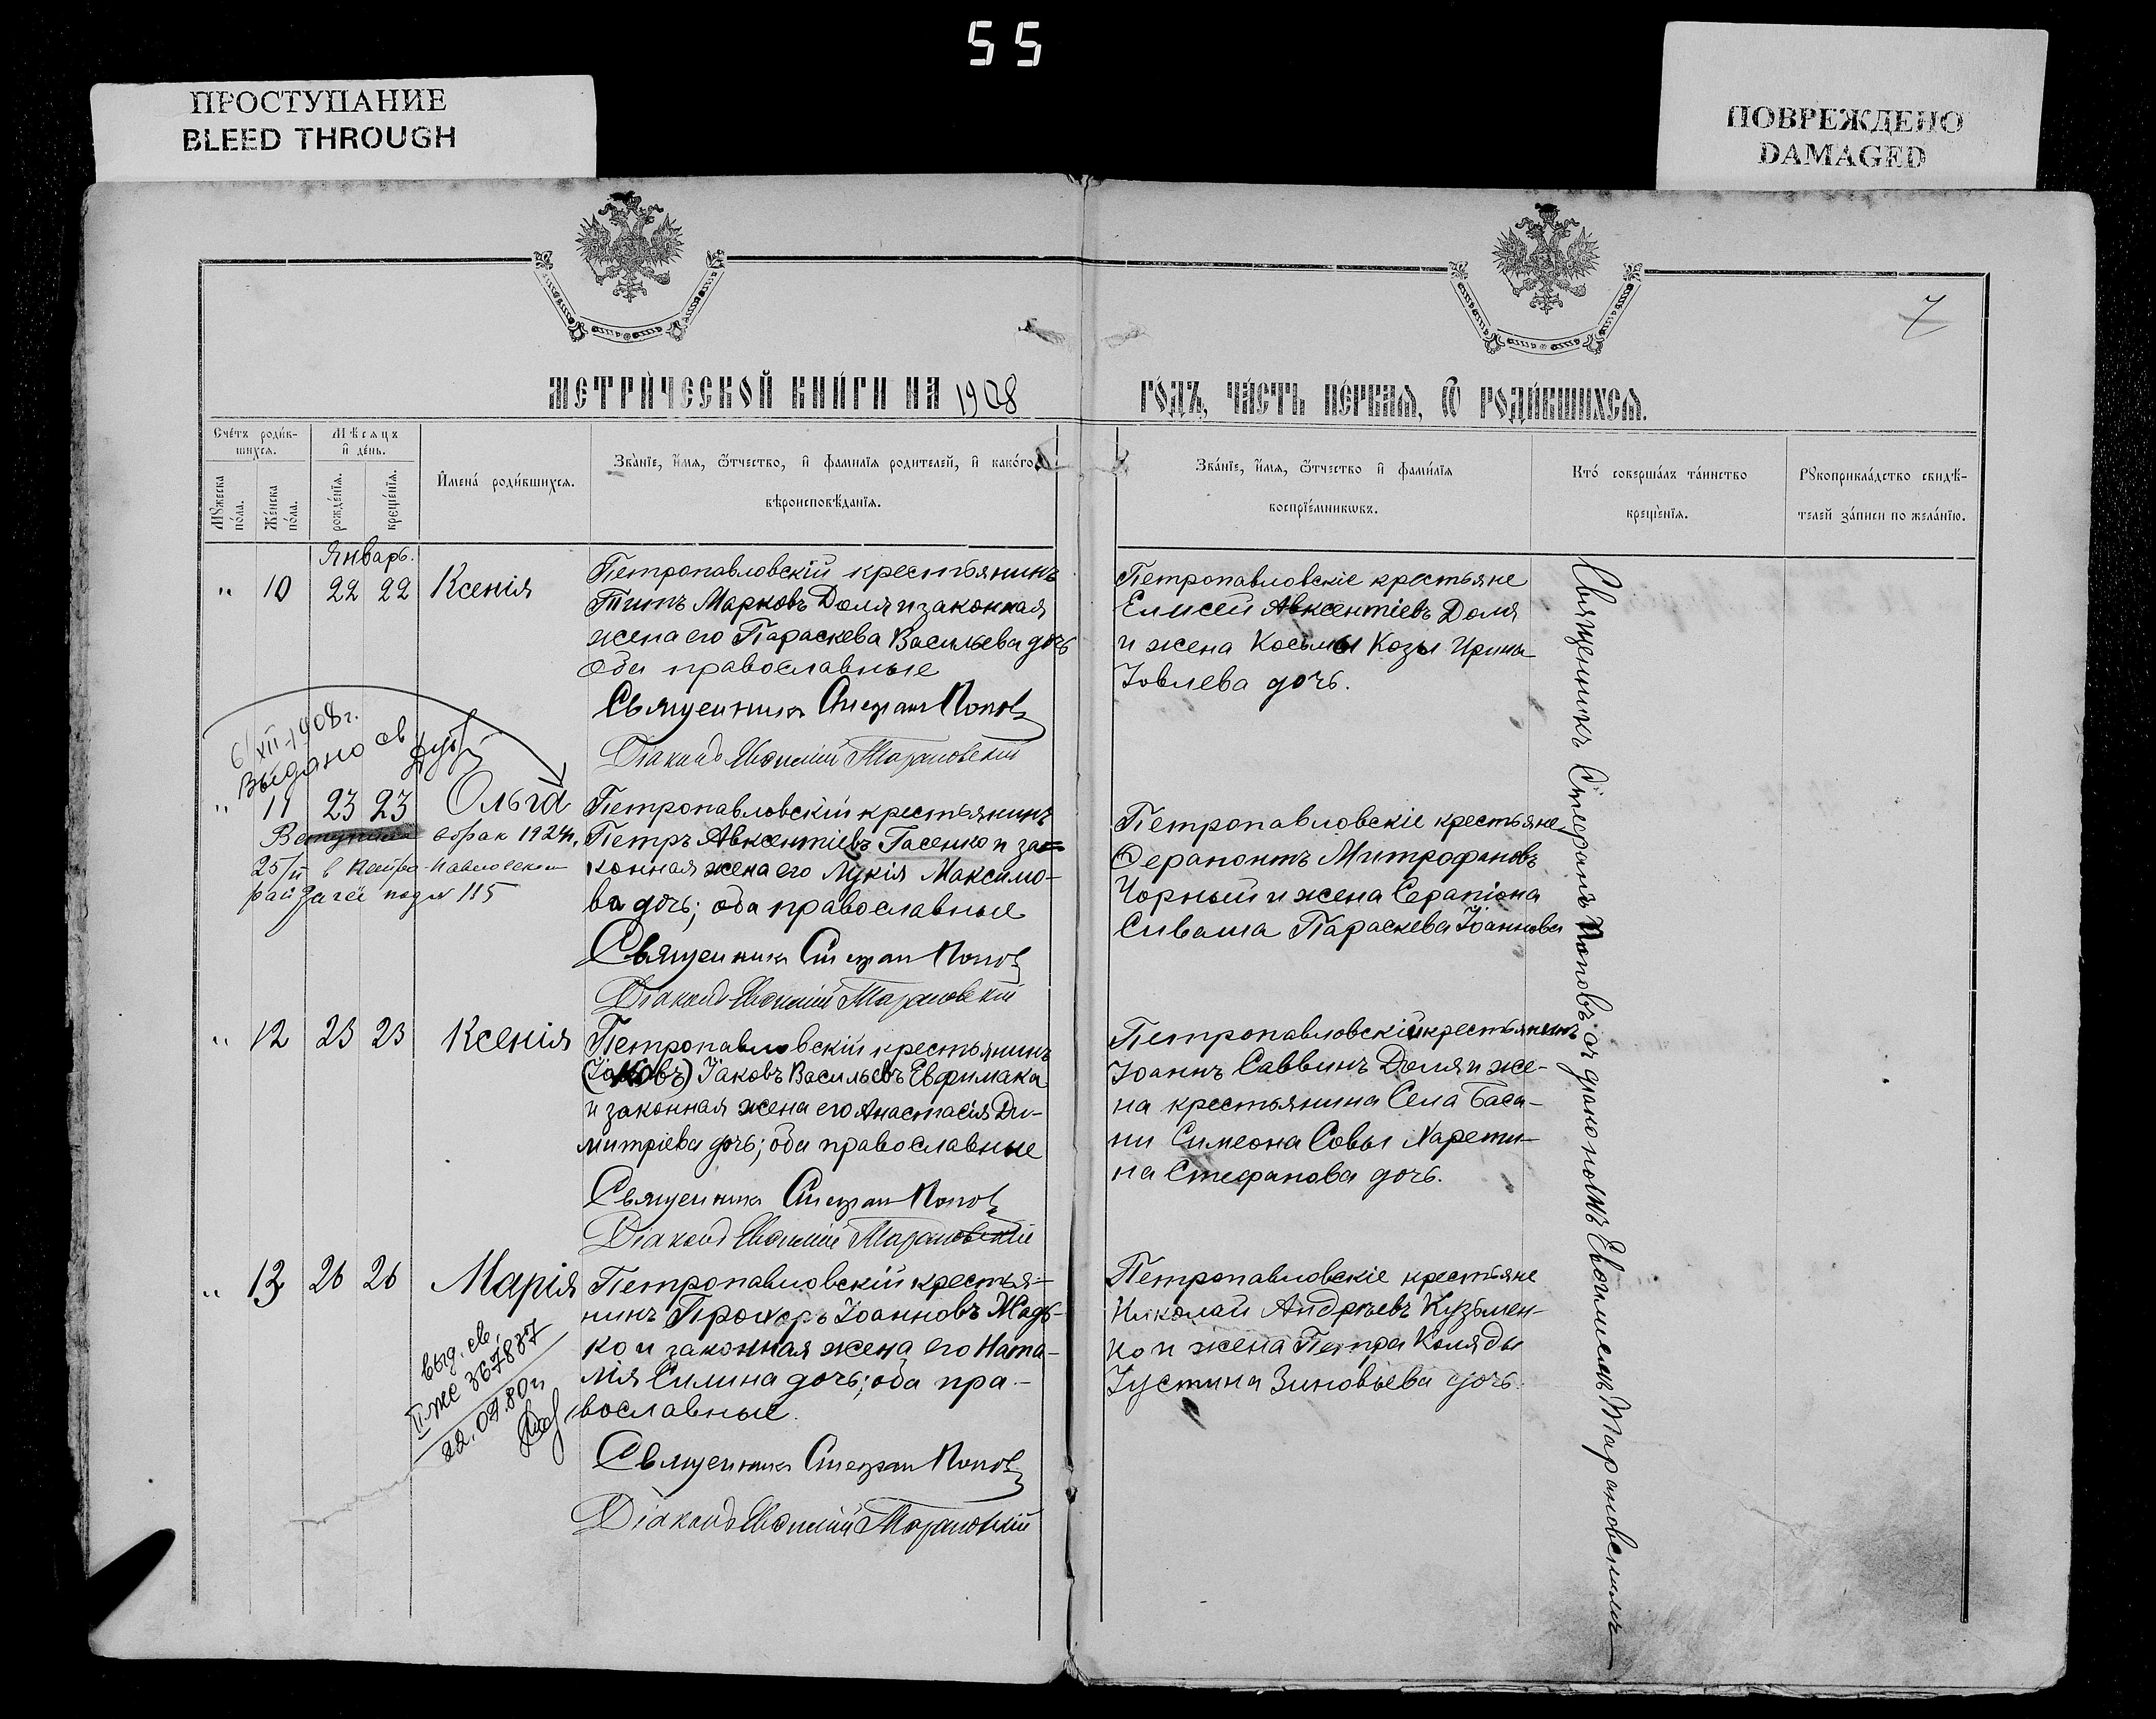 55
ПРОСТУПАНИЕ
BLEED THROUGH
ПОВРЕЖДЕНО
DAMAGED
7
МЕТРИ́ЧЕСКОЙ КНИ́ГИ НА 1908
ГО́ДЪ, ЧА́СТЬ ПЕ́РВАЯ, Ѡ РОДИ́ВШИХСЯ.
Сче́тъ роди́в-
шихся.
Мѣсяцъ
и҆ де́нь.
Му́жеска
по́ла.
Же́нска
по́ла.
рожде́нїя.
креще́нїя.
И҆мена́ роди́вшихся.
Зва́нїе, и҆́мя, ѻ҆́тчество, и҆ фамилїя родителей, и҆ како́го
вѣроисповѣданїя.
Зва́нїе, и҆́мя, ѻ҆́тчество и҆ фами́лїя
воспрїе́мникѡвъ.
Кто́ соверша́лъ та́инство
креще́нїя.
Рꙋкоприкла́дство свидѣ́-
телей за́писи по жела́нїю.
Январь.
" 10 22 22 Ксенія
Петропавловскій крестьянинъ
Титъ Марковъ Доля и законная
жена его Параскева Васильева дочь
оба православные
Священникъ Стефанъ Поповъ
Діаконъ Евфимій Тарановскій
Петропавловскіе крестьяне
Елисей Авксентіевъ Доля
и жена Косьмы Козы Ирина
Іовлева дочь.
6/XII-1908г.
Выдано св
" 11 23 23 Ольга
в брак 1924г,
25/II в Петро-Павловском
рай загсе под № 115
Петропавловскій крестьянинъ
Петръ Авксентіевъ Гасенко и за=
конная жена его Лукія Максимо-
ва дочь; оба православные
Священникъ Стефанъ Поповъ
Діаконъ Евфимій Тарановскій
Петропавловскіе крестьяне
Ѳерапонтъ Митрофановъ
Чорный и жена Серапіона
Сиваша Параскева Іоаннова
" 12 23 23 Ксенія
Петропавловскій крестьянинъ
(Іаковъ) Іаковъ Васильевъ Евфимака
и законная жена его Анастасія Ди-
митріева дочь; оба православные
Священникъ Стефанъ Поповъ
Діаконъ Евфимій Тарановскій
Петропавловскій крестьянинъ
Іоаннъ Саввинъ Доля и же-
на крестьянина Села Баса-
ни Симеона Совы Харети-
на Стефанова дочь.
" 13 26 26 Марія
выд. св.
II-ЖС 367837
22.07.80г
Петропавловскій крестья-
нинъ Прохоръ Іоанновъ Жадь-
ко и законная жена его Ната-
лія Силина дочь; оба пра-
вославные.
Священникъ Стефанъ Поповъ
Діаконъ Евфимій Тарановскій
Петропавловскіе крестьяне
Николай Андреевъ Кузьмен-
ко и жена Петра Коляды
Іустина Зиновьева дочь.
Священникъ Стефанъ Поповъ съ діакономъ Евфиміемъ Тарановскимъ